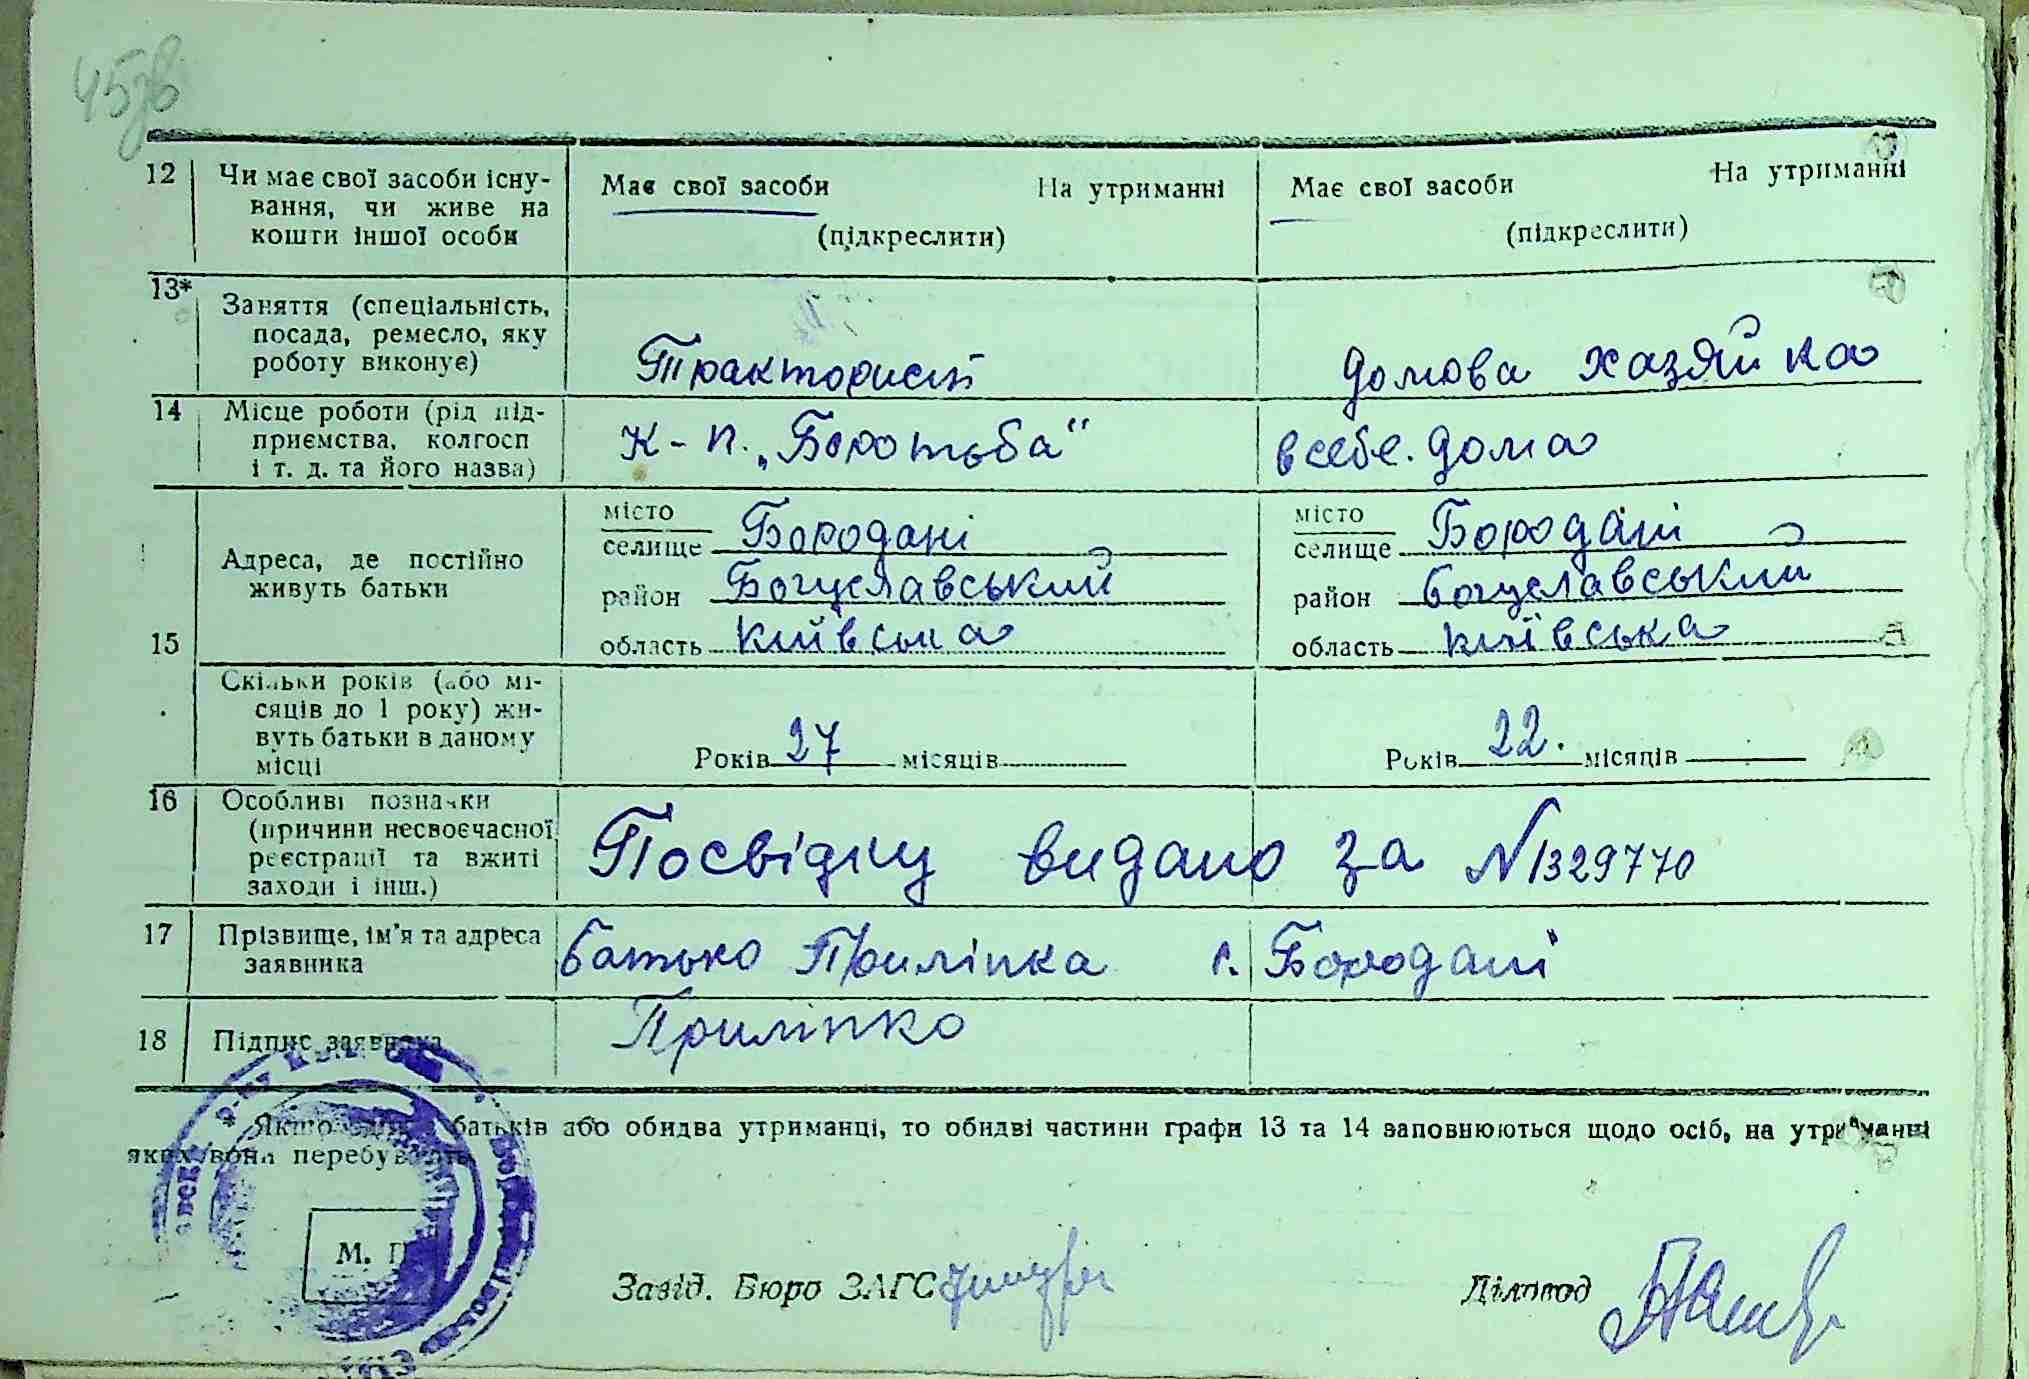 45зв
12 Чи має свої засоби існу- Має свої засоби На утриманні Має свої засоби На утриманні
вання, чи живе на
кошти іншої особи (підкреслити) (підкреслити)
13* Заняття (спеціальність,
посада, ремесло, яку
роботу виконує) Тракторист домова хазяйка
14 Місце роботи (рід під-
приємства, колгосп К-п. „Боротьба" в себе. дома
і т. д. та його назва)
15 Адреса, де постійно
живуть батьки
місто місто
селище Бородані селище Бородані
район Богуславський район Богуславський
область київська область київська
Скільки років (або мі-
сяців до 1 року) жи-
вуть батьки в даному
місці Років 27 місяців Років 22. місяців
16 Особливі позначки
(причини несвоєчасної
реєстрації та вжиті Посвідку видано за N1329770
заходи і інш.)
17 Прізвище, ім'я та адреса
заявника батько Приліпка с. Бородані
18 Підпис заявника Приліпко
Якщо батьків або обидва утриманці, то обидві частини графи 13 та 14 заповнюються щодо осіб, на утриманні
яких вони перебувають
М. П.
Завід. Бюро ЗАГС Діловод